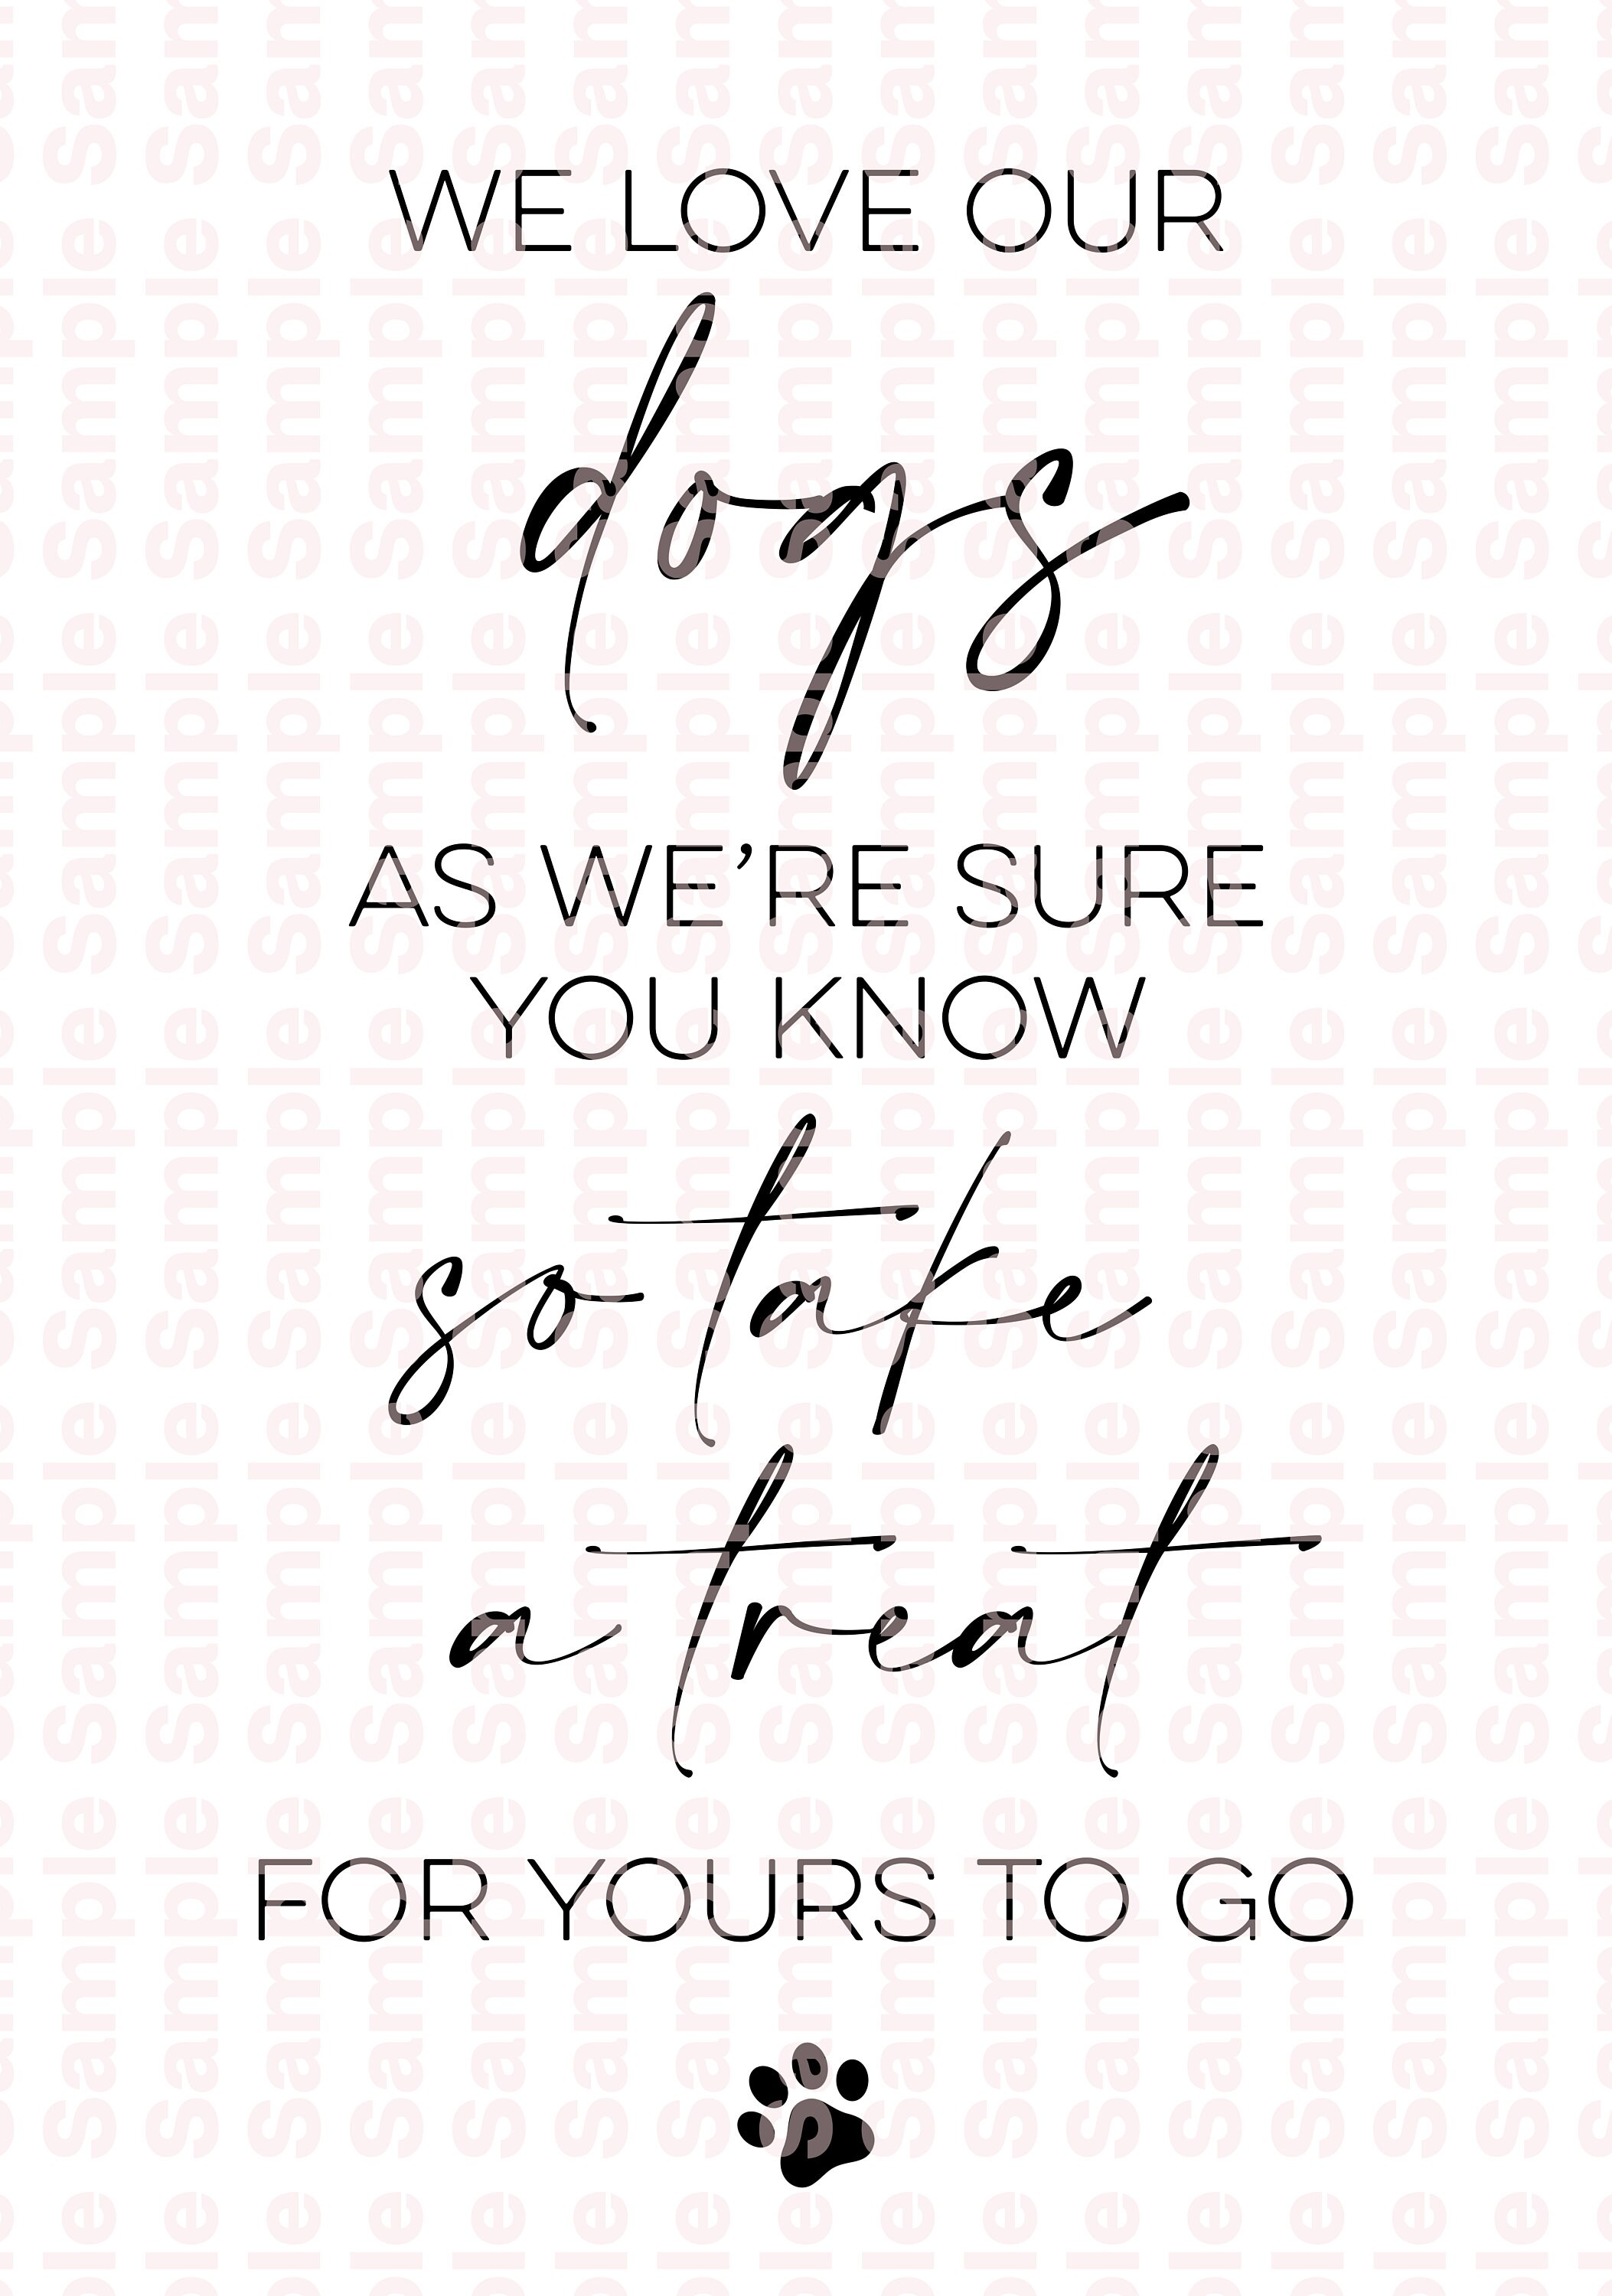 WE LOVE OUR
dogs
AS WE’RE SURE
YOU KNOW
so take
a treat
FOR YOURS TO GO
Sample